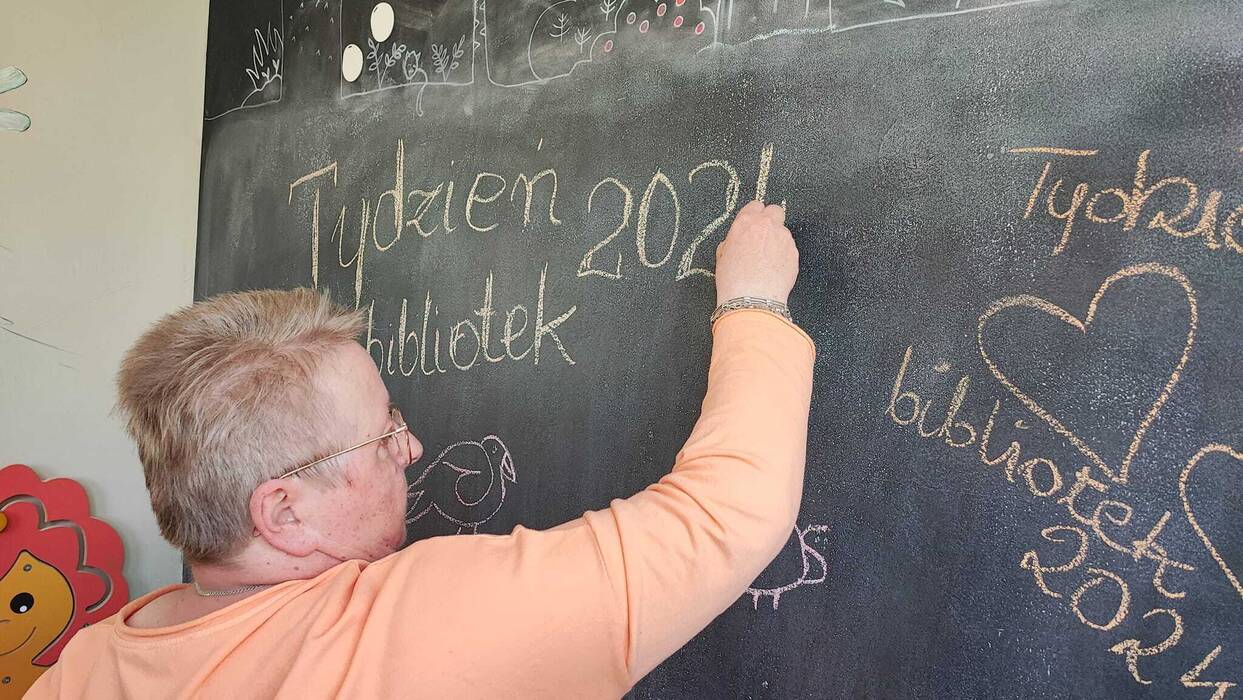 Tydzień 202
bibliotek
Tydzie
bibliotek
2024